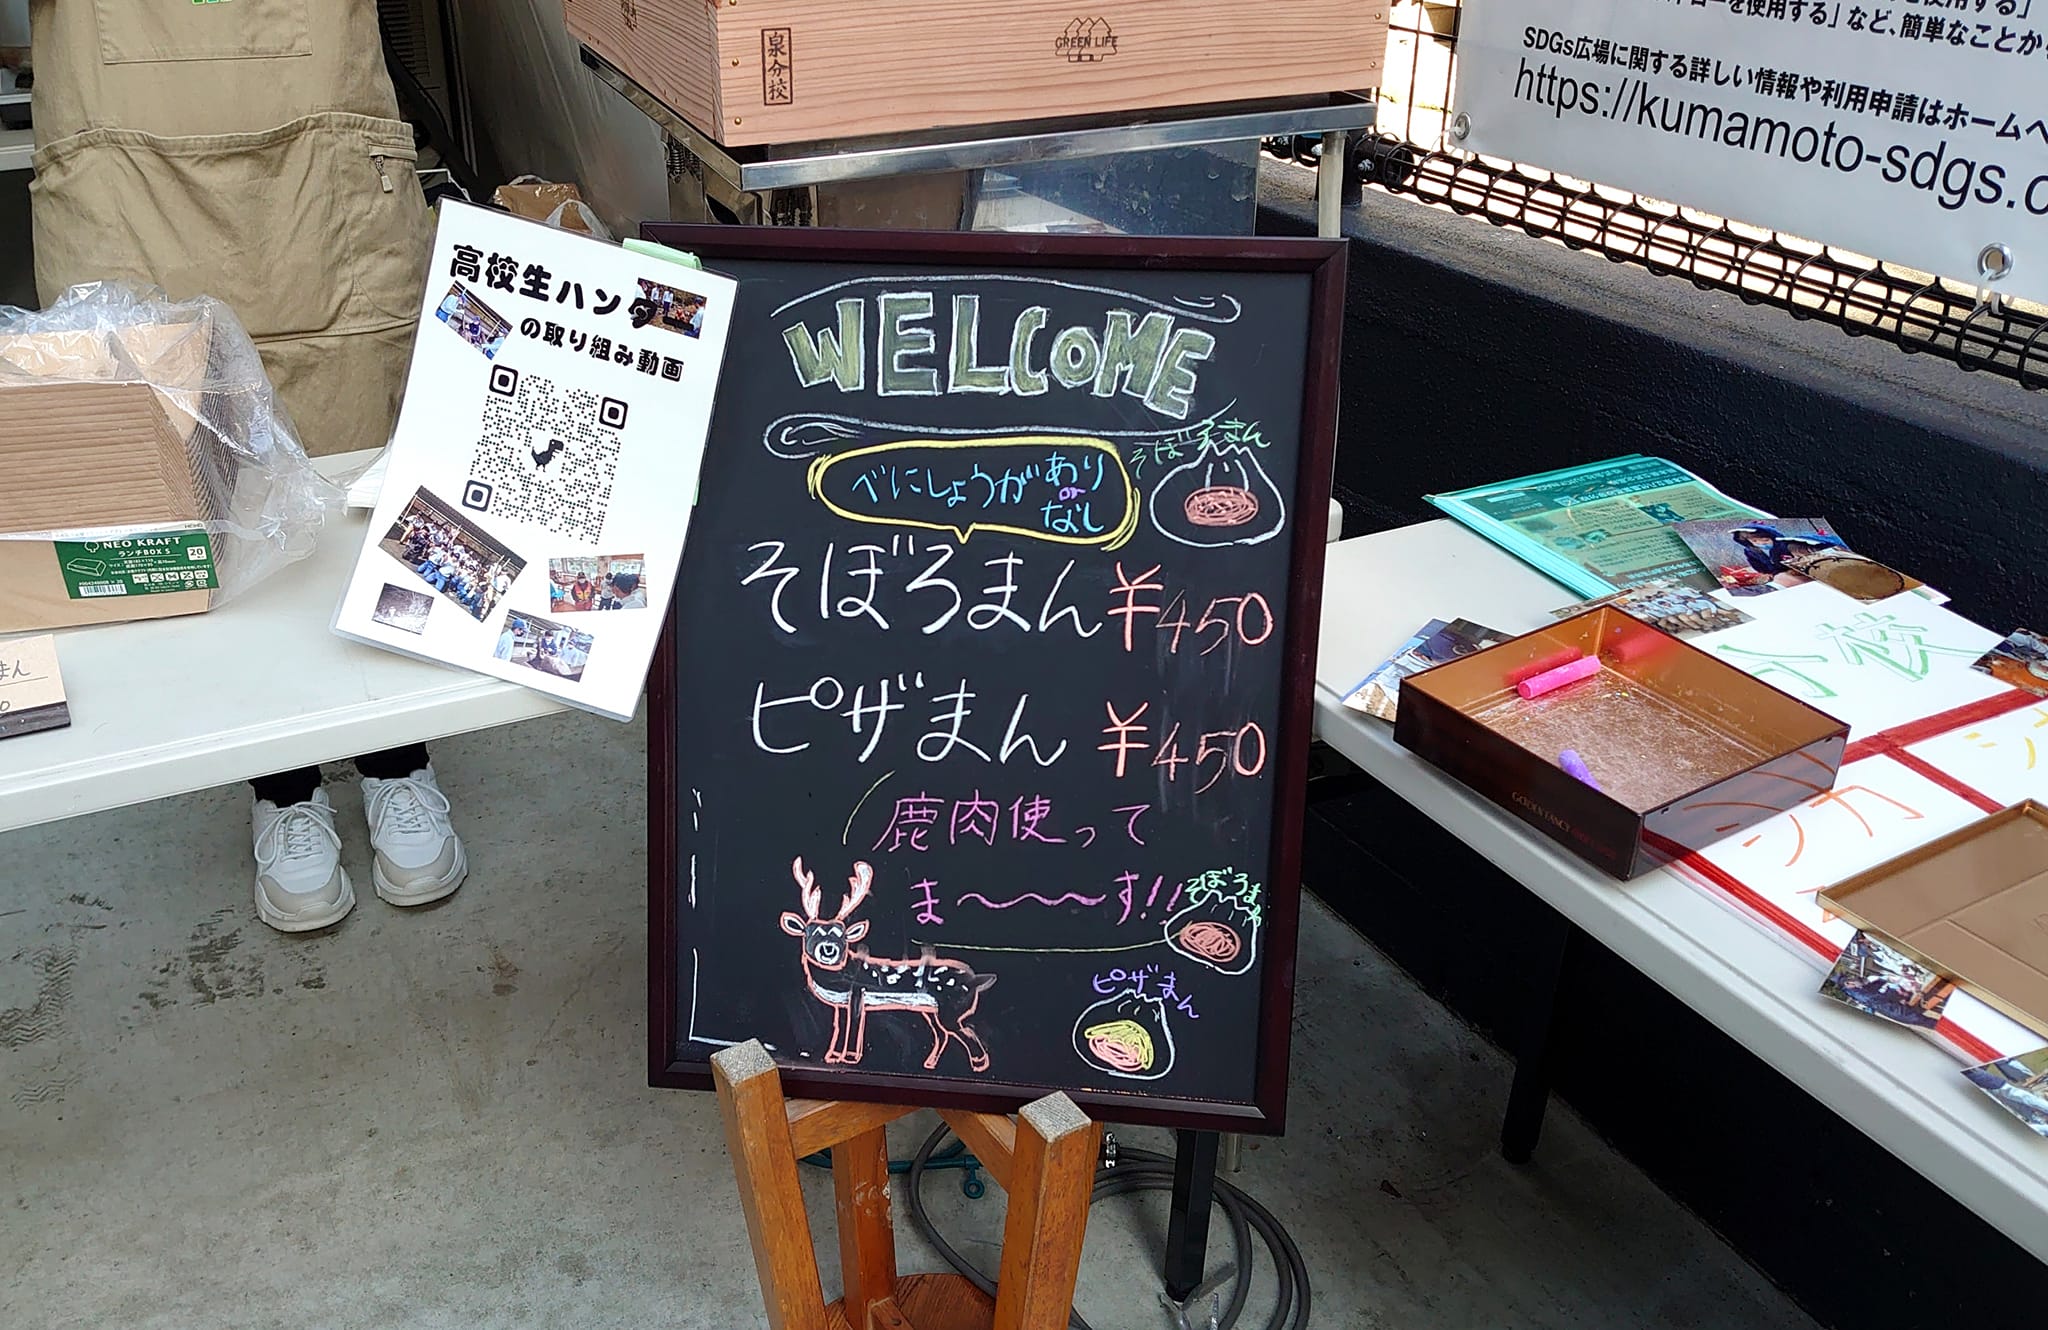 泉分校
GREEN LIFE
を使用する」など、簡単なことから
SDGs広場に関する詳しい情報や利用申請はホームペ
https://kumamoto-sdgs.c
高校生ハンター
の取り組み動画
WELCOME
べにしょうがあり
or
なし
そぼろまん
そぼろまん ¥450
ピザまん ¥450
鹿肉使って
ま〜〜〜す!!
そぼろまん
ピザまん
NEO KRAFT
ランチBOX S
20
まん
分校
シカ